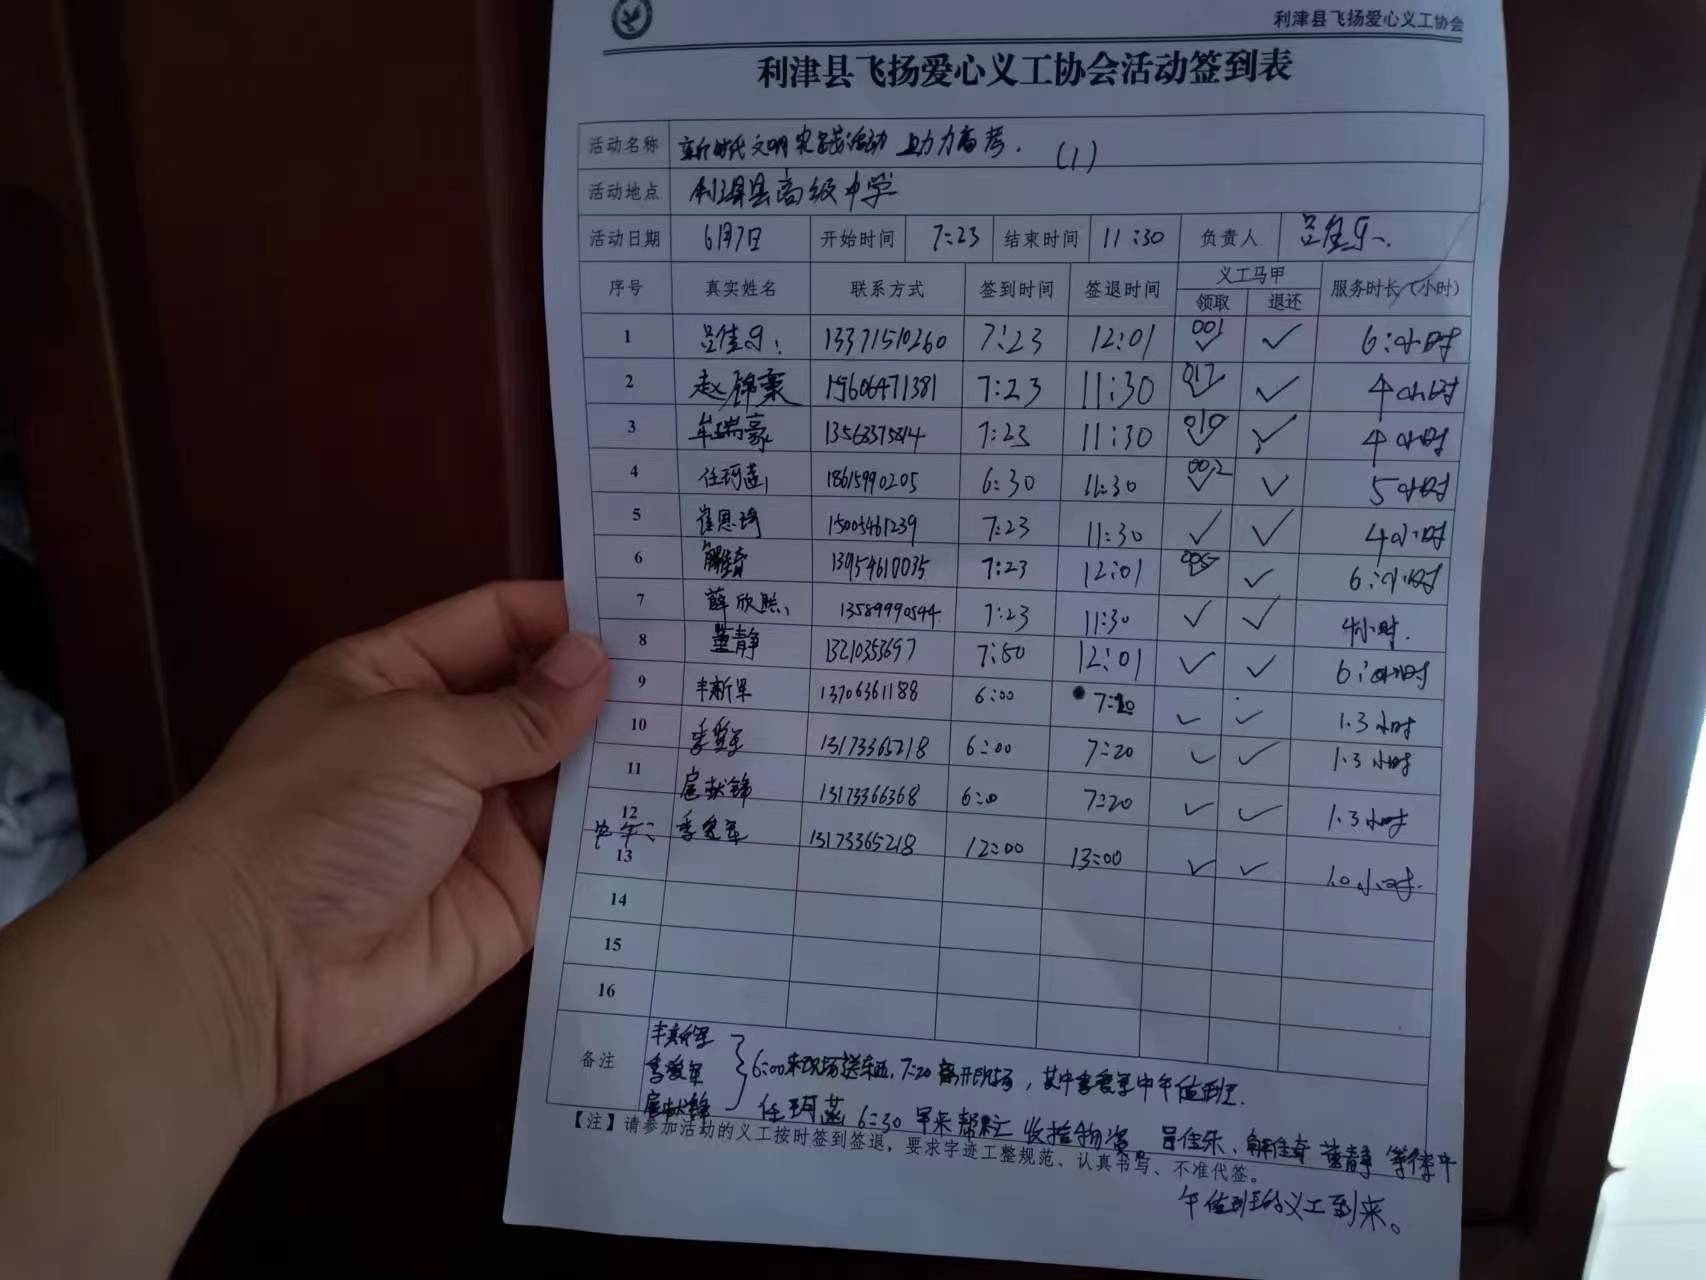 利津县飞扬爱心义工协会
利津县飞扬爱心义工协会活动签到表
活动名称 新时代文明实践活动 助力高考. (1)
活动地点 利津县高级中学
活动日期 6月7日 开始时间 7:23 结束时间 11:30 负责人 吕佳乐
序号 真实姓名 联系方式 签到时间 签退时间 义工马甲 服务时长(小时)
领取 退还
1 吕佳乐 13371510260 7:23 12:01 001 ✓ ✓ 6小时
2 赵锦秉 15606471381 7:23 11:30 017 ✓ ✓ 4小时
3 牟瑞豪 13568375814 7:23 11:30 010 ✓ ✓ 4小时
4 任珂菡 18615990205 6:30 11:30 002 ✓ ✓ 5小时
5 崔恩琦 15005461239 7:23 11:30 ✓ ✓ 4小时
6 解佳奇 13954610035 7:23 12:01 005 ✓ ✓ 6小时
7 薛欣然 13589990594 7:23 11:30 ✓ ✓ 4小时.
8 董静 13210353697 7:50 12:01 ✓ ✓ 6小时
9 丰新军 13706361188 6:00 7:20 ✓ ✓ 1.3小时
10 李爱军 13173365218 6:00 7:20 ✓ ✓ 1.3小时
11 扈献锋 13173366368 6:0 7:20 ✓ ✓ 1.3小时
12 中午: 李爱军 13173365218 12:00 13:00 ✓ ✓ 1.0小时.
13
14
15
16
备注 丰新军
李爱军 } 6:00来现场送东西, 7:20离开现场, 其中李爱军中午值班.
扈献锋 任珂菡 6:30 早来帮忙 收拾物资 吕佳乐、解佳奇 董静 等待中
【注】请参加活动的义工按时签到签退，要求字迹工整规范、认真书写、不准代签。
午值班的义工到来。